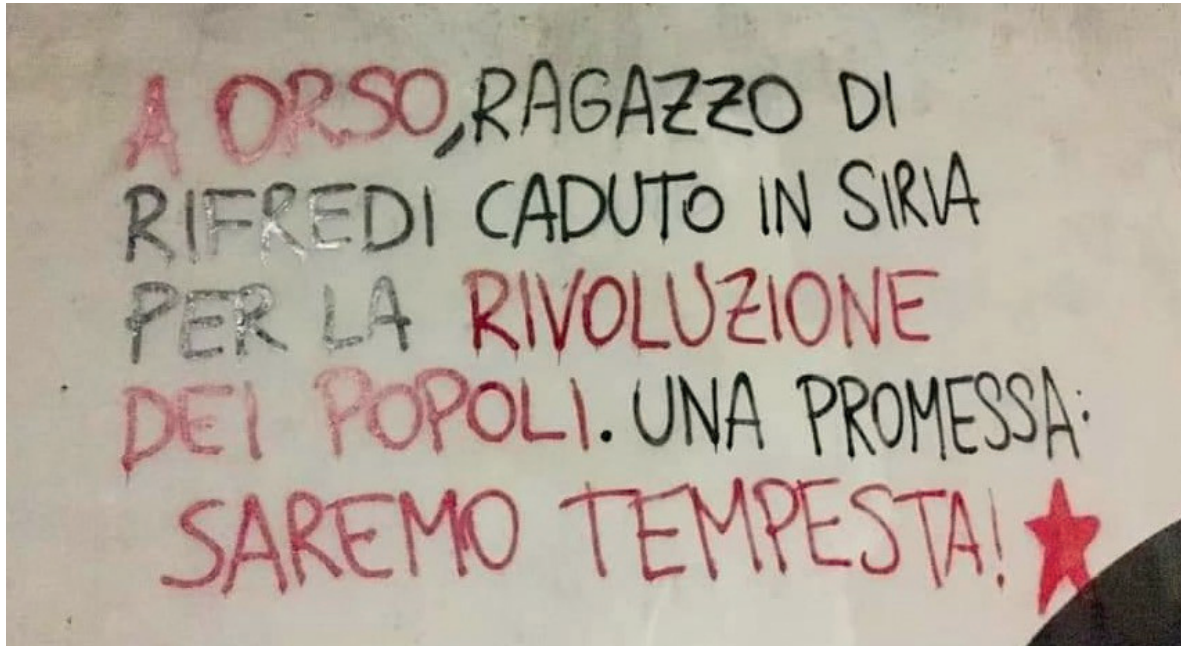 A ORSO, RAGAZZO DI
RIFREDI CADUTO IN SIRIA
PER LA RIVOLUZIONE
DEI POPOLI. UNA PROMESSA:
SAREMO TEMPESTA!